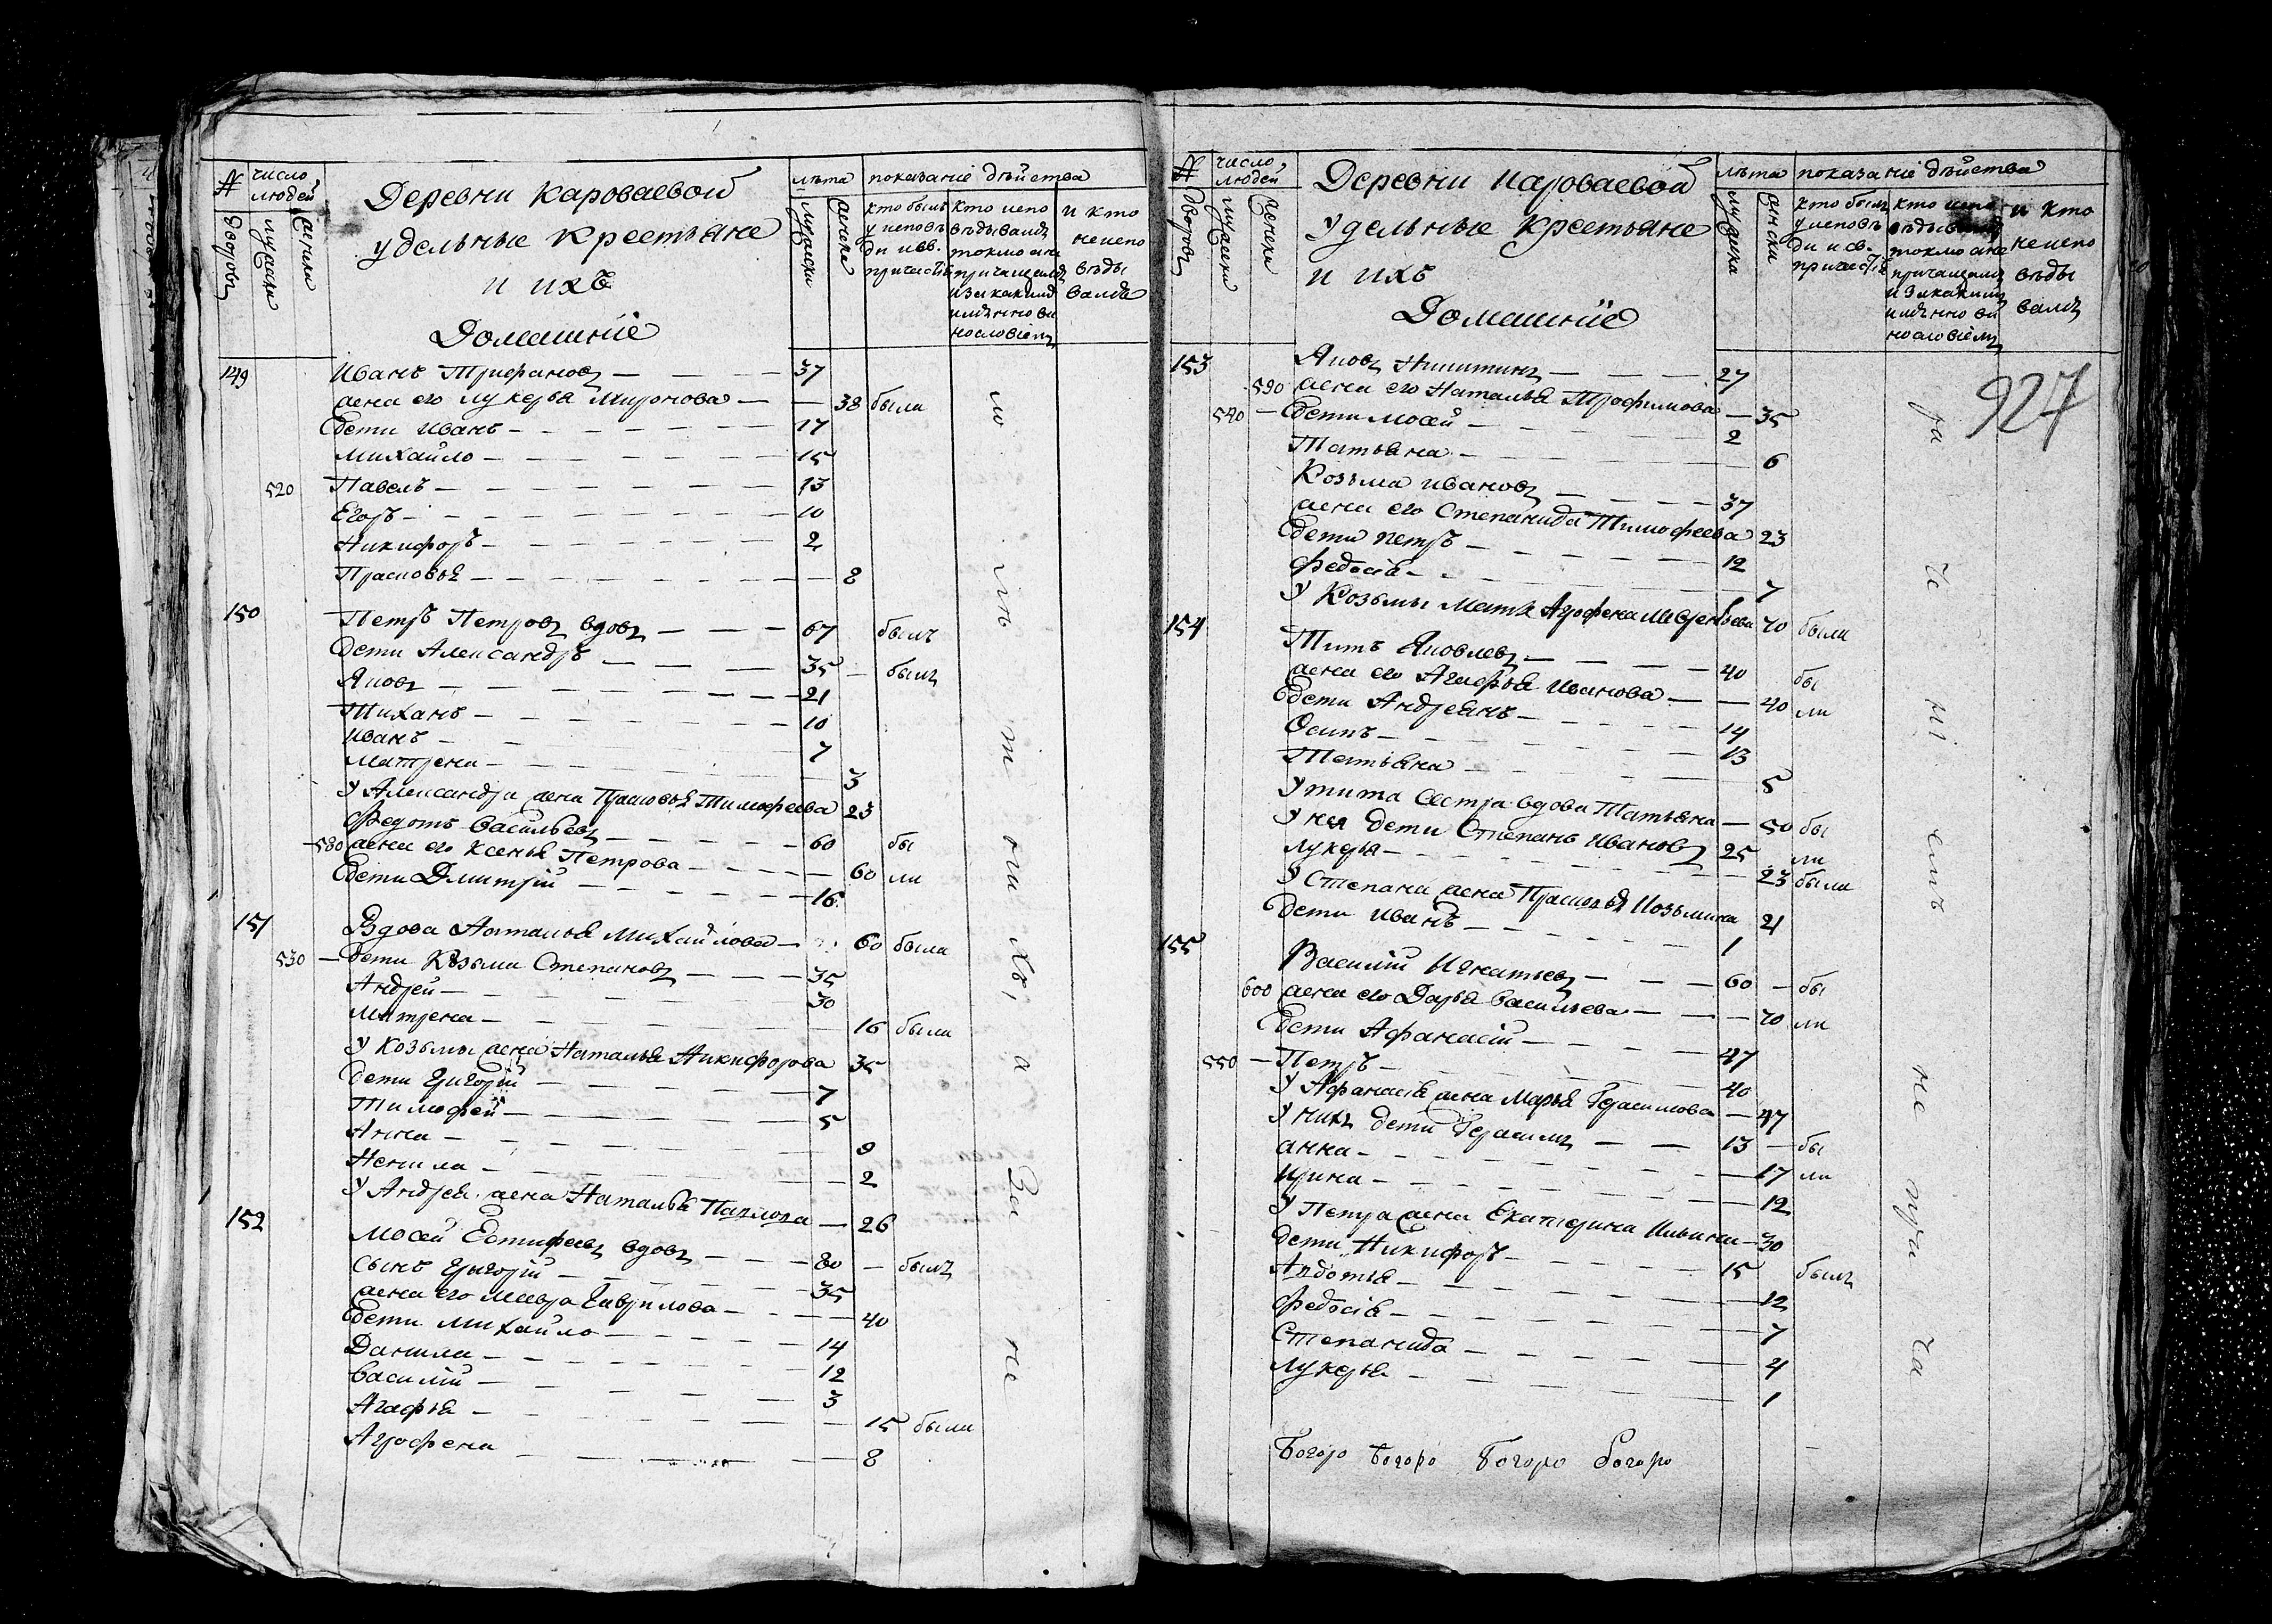 № дворовъ
число людей
мужески
женски
Деревни Кароваевой
удельные крестьяне
и ихъ
Домашніе
лѣта
мужески
женски
показаніе дѣйства
кто былъ
у исповѣ
ди и св.
причастія
кто испо
вѣдывалъ
токмо а не
причащалъ
и за какимъ
имѣнно ви
нословіемъ
и кто
не испо
вѣды
валъ
149 Иванъ Трифановъ — 37
жена его Лукерья Миронова — 38 была
дети Иванъ — 17
Михайло — 15
520 Павелъ — 13
Егоръ — 10
Никифоръ — 2
Прасковья — 8
150 Петръ Петровъ вдовъ — 67 былъ
дети Александръ — 35 — былъ
Яковъ — 21
Тиханъ — 10
Иванъ — 7
Матрена — 3
У Александра жена Прасковья Тимофеева 23
Федотъ Васильевъ — 60 бы
580 жена его Ксенья Петрова — 60 ли
дети Дмитрій — 16
151 Вдова Наталья Михайлова — 60 была
530 — дети Козьма Степановъ — 35
Андрей — 30
Матрена — 16 была
У Козьмы жена Наталья Никифорова 35
дети Григорій — 7
Тимофей — 5
Анна — 9
Ненила — 2
У Андрея жена Наталья Павлова — 26
152 Мосей Евтифеевъ вдовъ — 80 — былъ
сынъ Григорій — 35
жена его Мавра Гаврилова — 40
дети Михайло — 14
Данила — 12
Василій — 3
Агафья — 15 была
Агрофена — 8
№ дворовъ
число людей
мужески
женски
Деревни Кароваевой
Удельные Крестьяне
и ихъ
Домашніе
лѣта
мужеска
женски
показаніе дѣйства
кто былъ
у исповѣ
ди и св.
причастія
кто испо
вѣдывалъ
токмо а не
причащалъ
и за какимъ
имѣнно ви
нословіемъ
и кто
не испо
вѣды
валъ
927
153 Яковъ Никитинъ — 27
590 жена его Наталья Трофимова — 35
540 — дети Мосей — 2
Татьяна — 6
Козьма Ивановъ — 37
жена его Степанида Тимофеева 23
дети Петръ — 12
Федосья — 7
У Козьмы мать Агрофена 70 была
154 Титъ Яковлевъ — 40 бы
жена его Агафья Иванова — 40 ли
дети Андреянъ — 14
Осипъ — 13
Татьяна — 5
У Тита сестра вдова Татьяна — 50 бы
У нея дети Степанъ Ивановъ 25 ли
Лукерья — 23 была
У Степана жена Прасковья Козьмина 21
дети Иванъ — 1
155 Василій Игнатьевъ — 60 — бы
600 жена его Дарья Васильева — 70 ли
дети Афанасій — 47
550 — Петръ — 40
У Афанасья жена Марья Герасимова — 47
У нихъ дети Герасимъ — 13 — бы
Анна — 17 ли
Ирина — 12
У Петра жена Екатерина Ильина — 30
дети Никифоръ — 15 былъ
Авдотья — 12
Федосья — 7
Степанида — 4
Лукерья — 1
Богоро Богоро Богоро Богоро